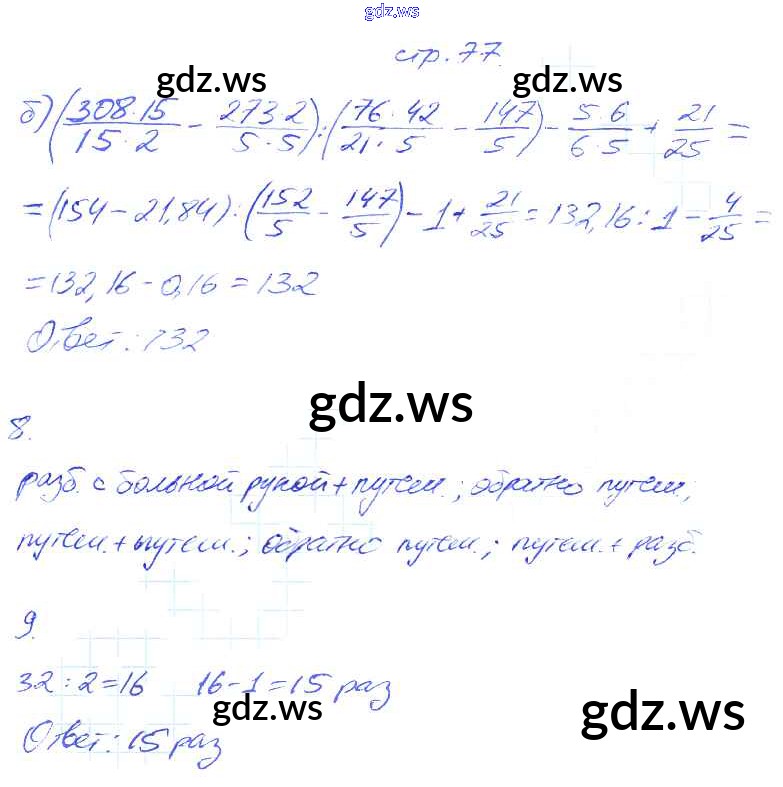 gdz.ws
стр. 77.
gdz.ws gdz.ws
б) (308·15/15·2 - 273·2/5·5) : (76·42/21·5 - 147/5) - 5·6/6·5 + 21/25 =
= (154 - 21,84) : (152/5 - 147/5) - 1 + 21/25 = 132,16 : 1 - 4/25 =
= 132,16 - 0,16 = 132
Ответ: 132
gdz.ws
8.
разб. с больной рукой + путем.; обратно путем.;
путем. + путем.; обратно путем.; путем. + разб.
9.
32 : 2 = 16 16 - 1 = 15 раз
gdz.ws gdz.ws
Ответ: 15 раз